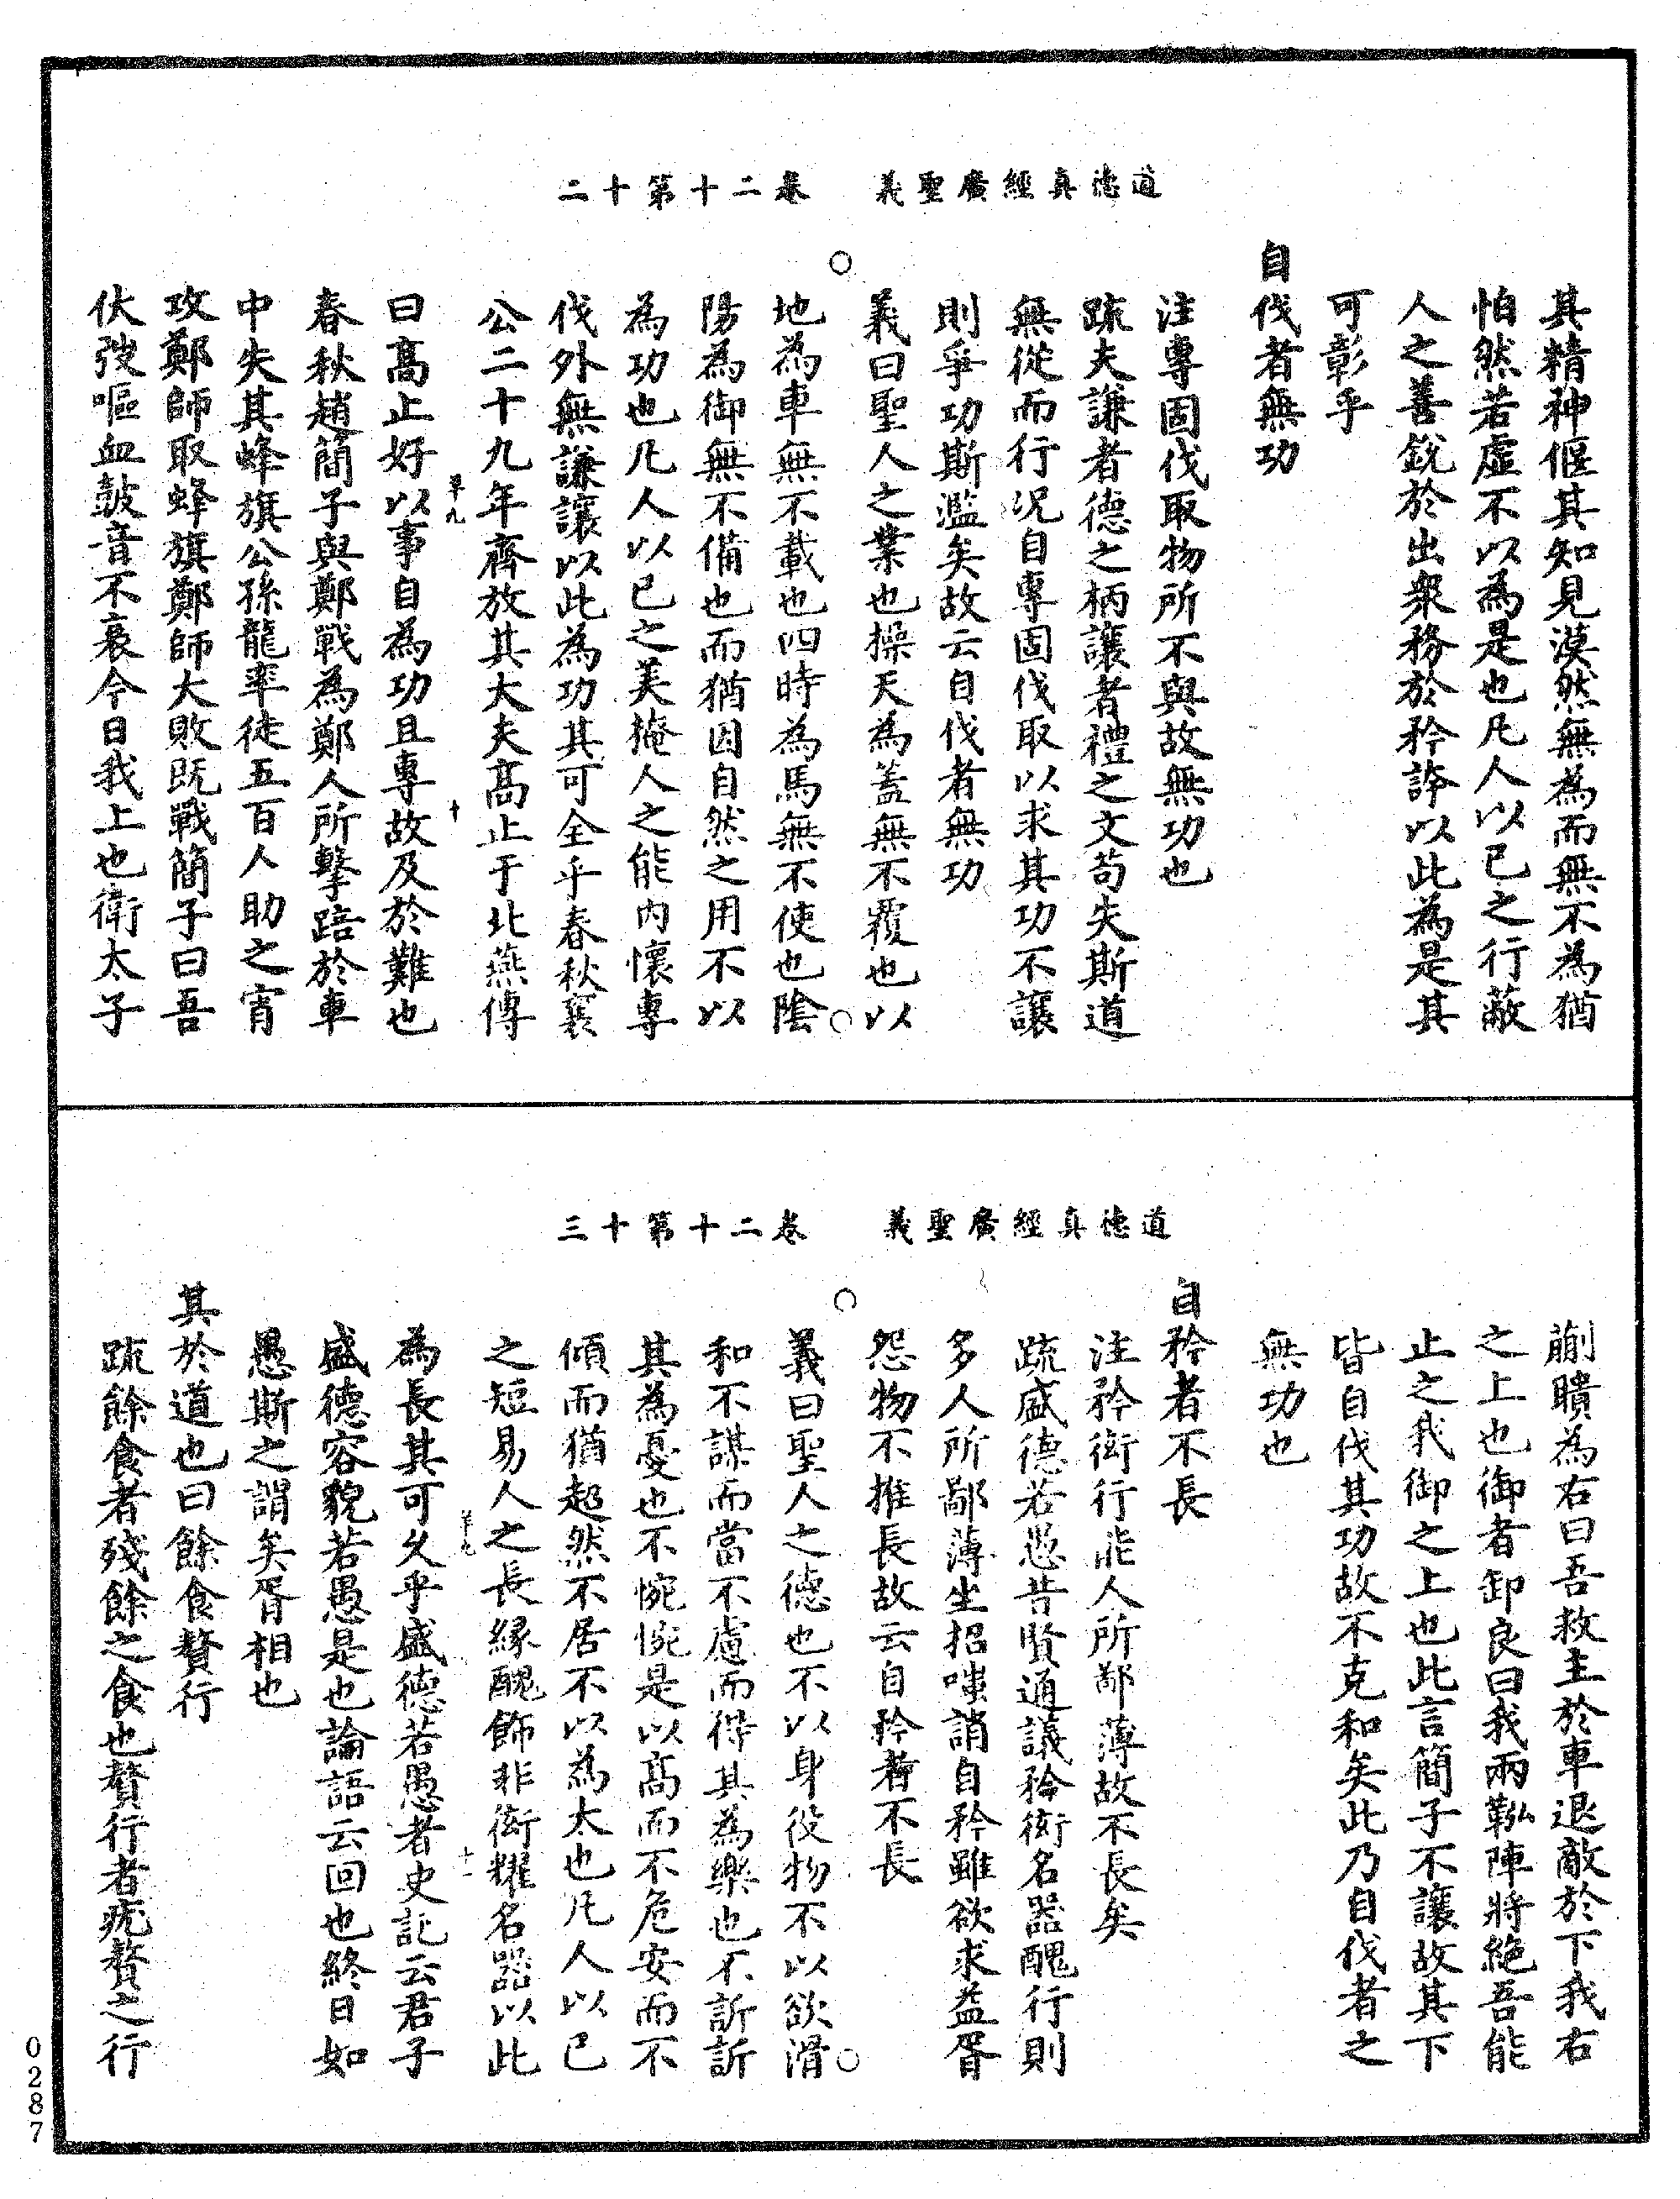 道德真經廣聖義　卷二十第十二
其精神偃其知見漠然無為而無不為猶
怕然若虛不以為是也凡人以已之行蔽
人之善銳於出衆務於矜誇以此為是其
可彰乎
自伐者無功
注專固伐取物所不與故無功也
疏夫謙者德之柄讓者禮之文苟失斯道
無從而行況自專固伐取以求其功不讓
則爭功斯濫矣故云自伐者無功
義曰聖人之業也操天為蓋無不覆也以
地為車無不載也四時為馬無不使也陰
陽為御無不備也而猶因自然之用不以
為功也凡人以已之美掩人之能內懷專
伐外無謙讓以此為功其可全乎春秋襄
公二十九年齊放其大夫高止于北燕傳
草九　十
曰高止好以事自為功且專故及於難也
春秋趙簡子與鄭戰為鄭人所擊踣於車
中失其蜂旗公孫龍率徒五百人助之宵
攻鄭師取蜂旗鄭師大敗既戰簡子曰吾
伏弢嘔血鼓音不衰今日我上也衛太子
道德真經廣聖義　卷二十第十三
蒯聵為右曰吾救主於車退敵於下我右
之上也御者卸良曰我兩靷陣將絕吾能
止之我御之上也此言簡子不讓故其下
皆自伐其功故不克和矣此乃自伐者之
無功也
自矜者不長
注矜衒行能人所鄙薄故不長矣
疏盛德若愚昔賢通議矜衒名器醜行則
多人所鄙薄坐招嗤誚自矜雖欲求益胥
怨物不推長故云自矜者不長
義曰聖人之德也不以身役物不以欲滑
和不謀而當不慮而得其為樂也不訢訢
其為憂也不惋惋是以高而不危安而不
傾而猶超然不居不以為太也凡人以已
之短易人之長緣醜飾非衒耀名器以此
草九　十一
為長其可久乎盛德若愚者史記云君子
盛德容貌若愚是也論語云回也終日如
愚斯之謂矣胥相也
其於道也曰餘食贅行
疏餘食者殘餘之食也贅行者疣贅之行
0287